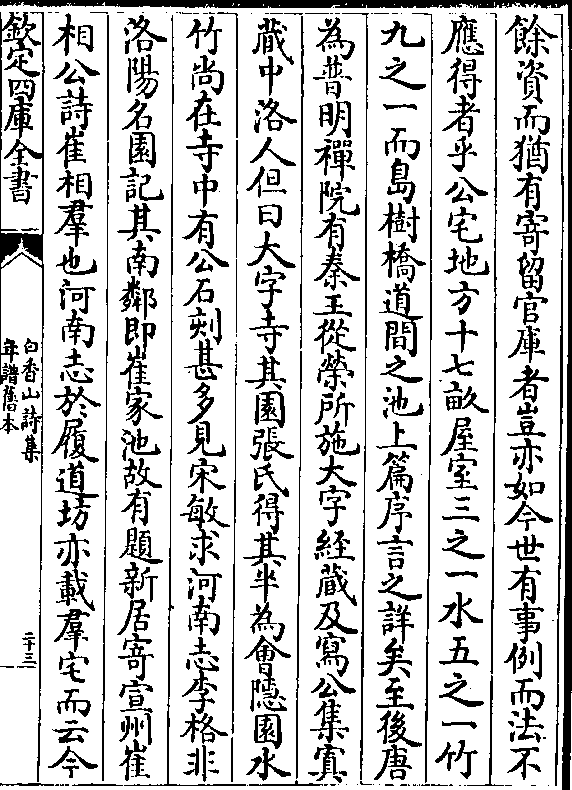 餘資而猶有寄留官庫者豈亦如今世有事例而法不
應得者乎公宅地方十七畝屋室三之一水五之一竹
九之一而島樹橋道間之池上篇序言之詳矣至後唐
為普明禪院有秦王從榮所施大字經藏及寫公集寘
藏中洛人但曰大字寺其園張氏得其半為會隱園水
竹尚在寺中有公石刻甚多見宋敏求河南志李格非
洛陽名園記其南鄰即崔家池故有題新居寄宣州崔
相公詩崔相羣也河南志於履道坊亦載羣宅而云今
欽定四庫全書
白香山詩集
年譜舊本
二十三